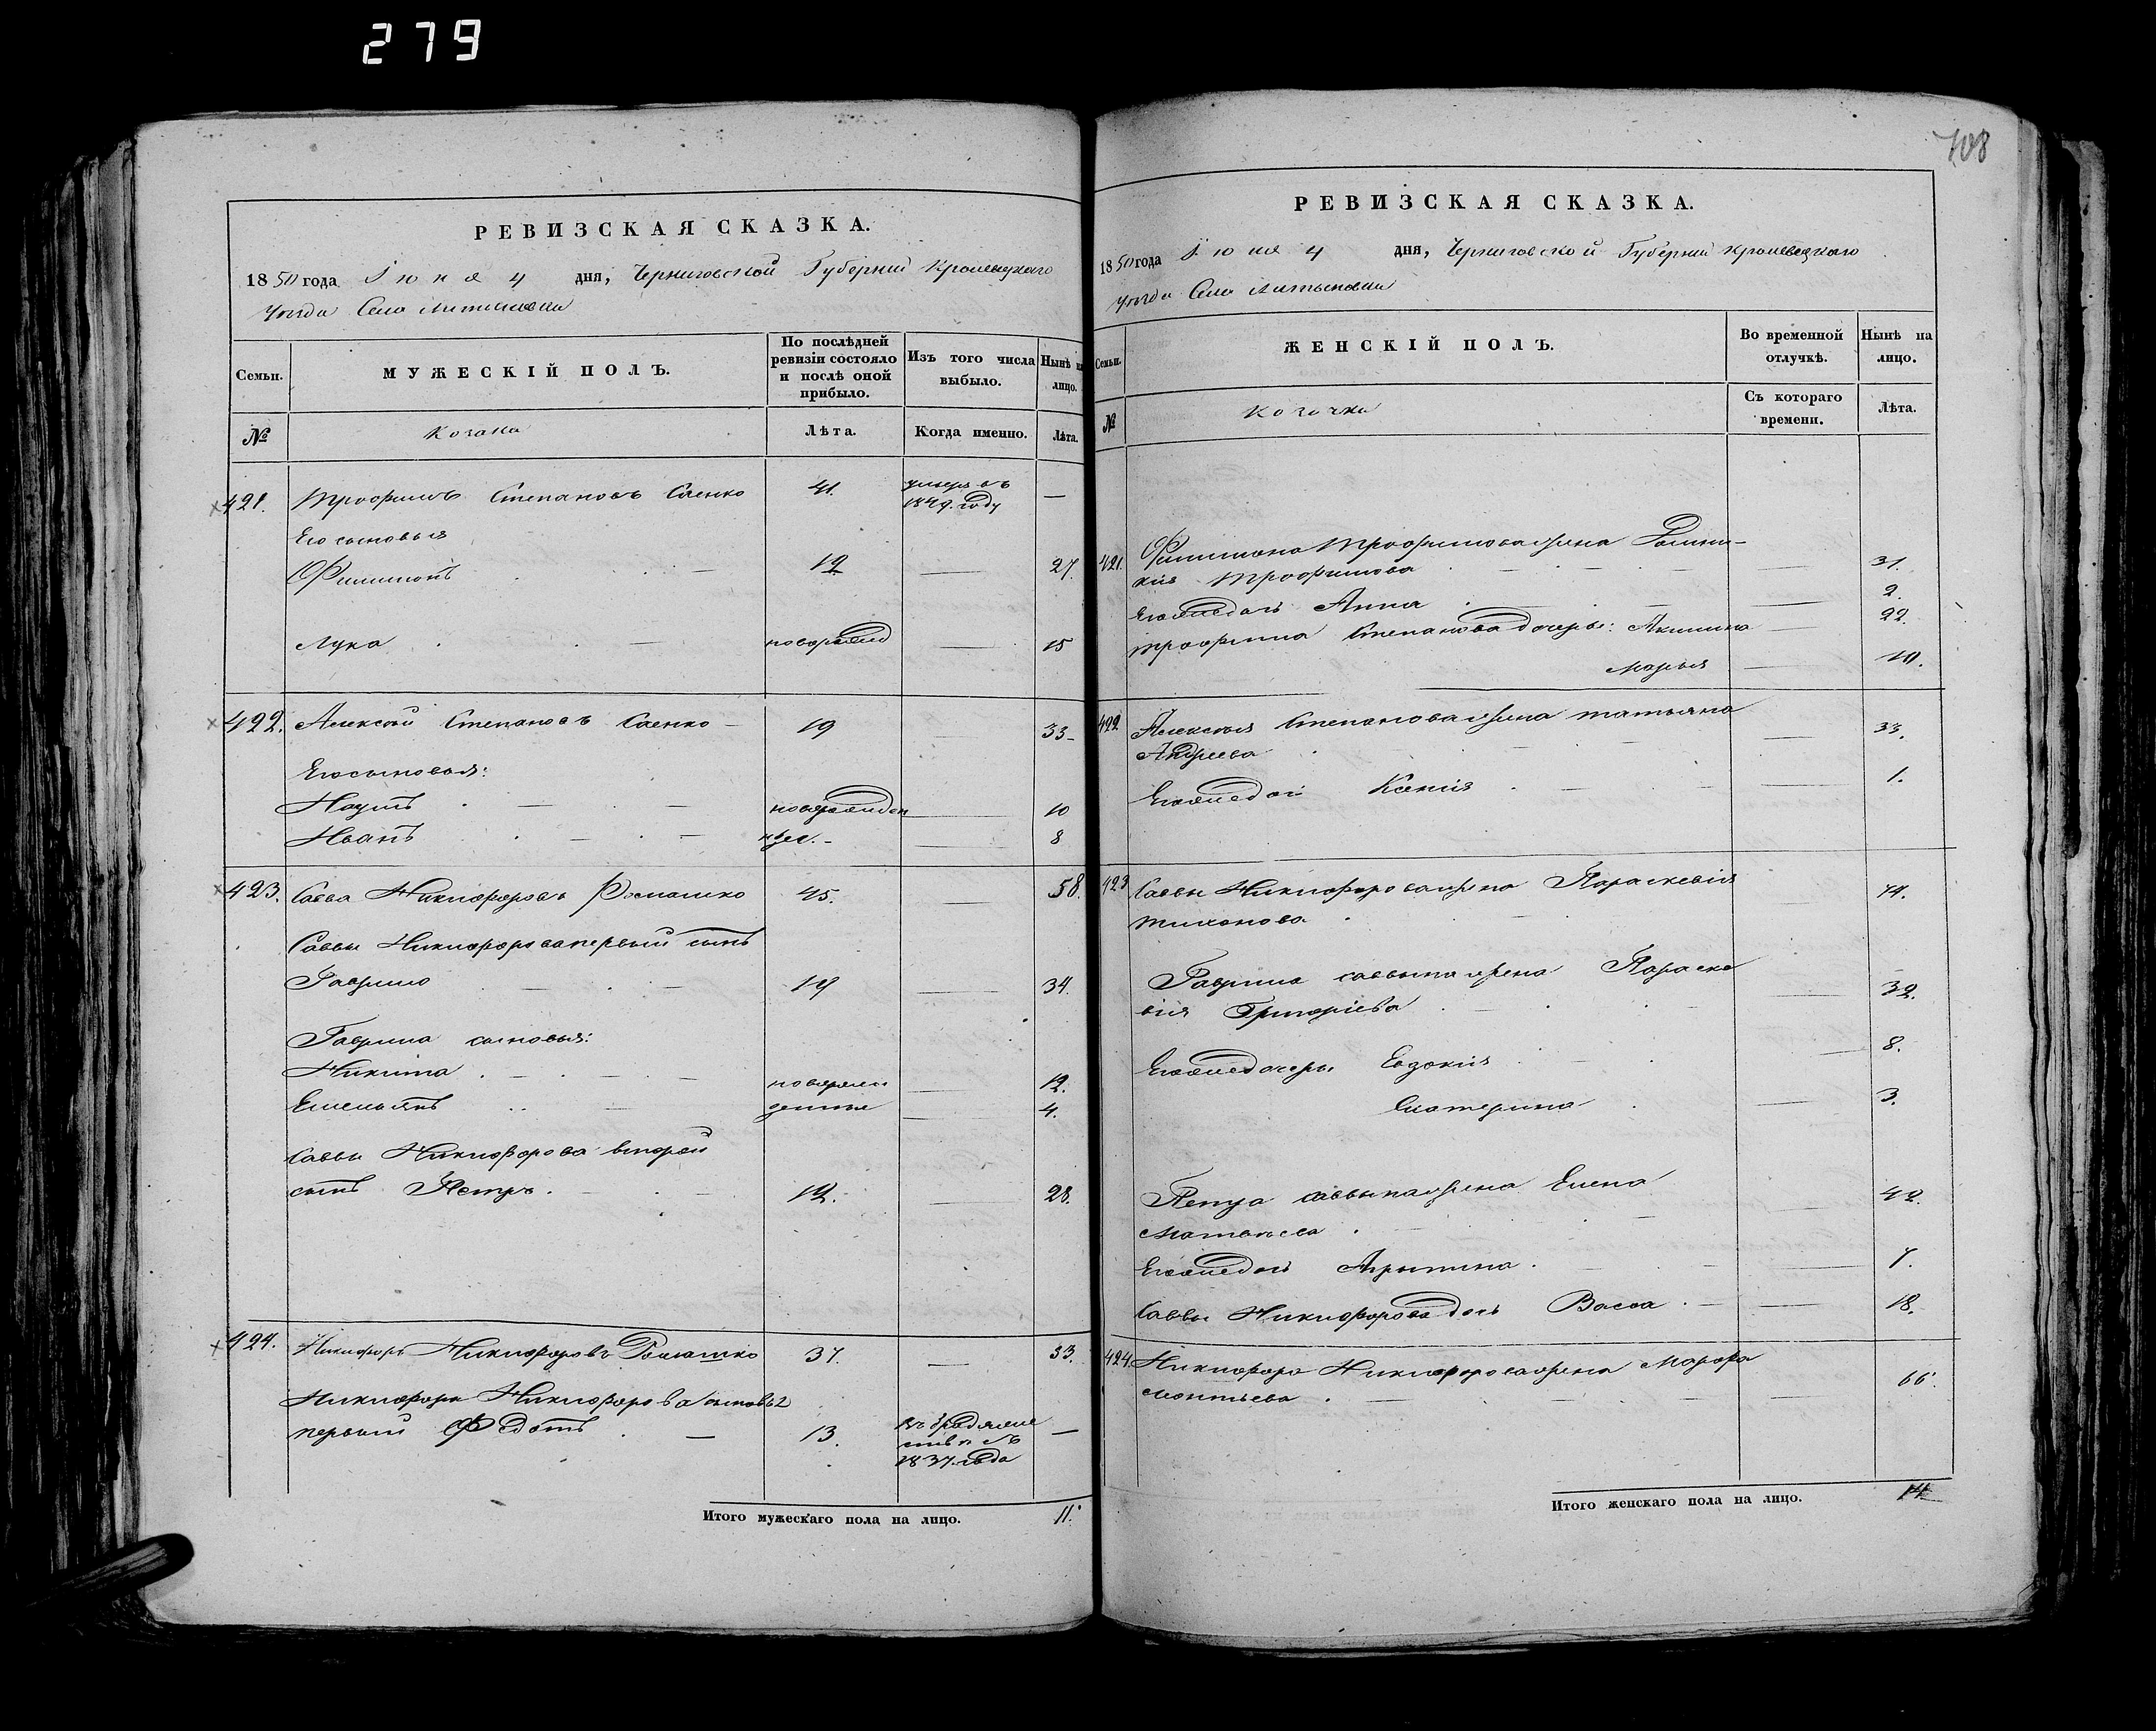 279
РЕВИЗСКАЯ СКАЗКА.
1850 года Іюня 4 дня, Черниговской Губерніи Кролевецкаго
уѣзда Села Литвиновки
Семьи.
МУЖЕСКІЙ ПОЛЪ.
По послѣдней ревизіи состояло и послѣ оной прибыло.
Изъ того числа выбыло.
Нынѣ на лицо.
№
Козаки
Лѣта.
Когда именно.
Лѣта.
421. Трофимъ Степановъ Саенко 41. умеръ въ 1849. году —
Его сыновья
Филимонъ 12 — 27.
Лука новорожд — 15
422. Алексѣй Степановъ Саенко 19 — 33
Его сыновья:
Наумъ новорожден — 10
Иванъ ные. — 8
423. Савва Никифоровъ Ромашко 45. — 58.
Саввы Никифорова первый сынъ
Гаврило 19 — 34.
Гаврила сыновья:
Никита новорож — 12.
Емельянъ денные — 4.
Саввы Никифорова второй
сынъ Петръ. 12. — 28.
424. Никифоръ Никифоровъ Ромашко 37. — 53.
Никифора Никифорова сыновья
первый Федотъ 13. въ бродяжествѣ съ 1837. года —
Итого мужескаго пола на лицо. 11.
708
РЕВИЗСКАЯ СКАЗКА.
1850 года Іюня 4 дня, Черниговской Губерніи Кролевецкаго
уѣзда Села Литвиновки
Семьи.
ЖЕНСКІЙ ПОЛЪ.
Во временной отлучкѣ.
Нынѣ на лицо.
№
Козачки
Съ котораго времени.
Лѣта.
421. Филимона Трофимова жена Домни-
кія Трофимова — 31.
Его же дочь Анна — 2.
Трофима Степанова дочери: Акилина — 22.
Марья — 19.
422 Алексѣя Степанова жена Татьяна
Андреева — 33.
Его же дочь Ксенія — 1.
423 Саввы Никифорова жена Параскевія
Тихонова — 74.
Гаврила Саввина жена Параске
вія Григоріева — 32.
Его же дочери Евдокія — 8.
Екатерина — 3.
Петра Саввина жена Елена
Матвѣева — 42.
Его же дочь Агрипина — 7.
Саввы Никифорова дочь Васса — 18.
424. Никифора Никифорова жена Марфа
Леонтьева — 66.
Итого женскаго пола на лицо. 14